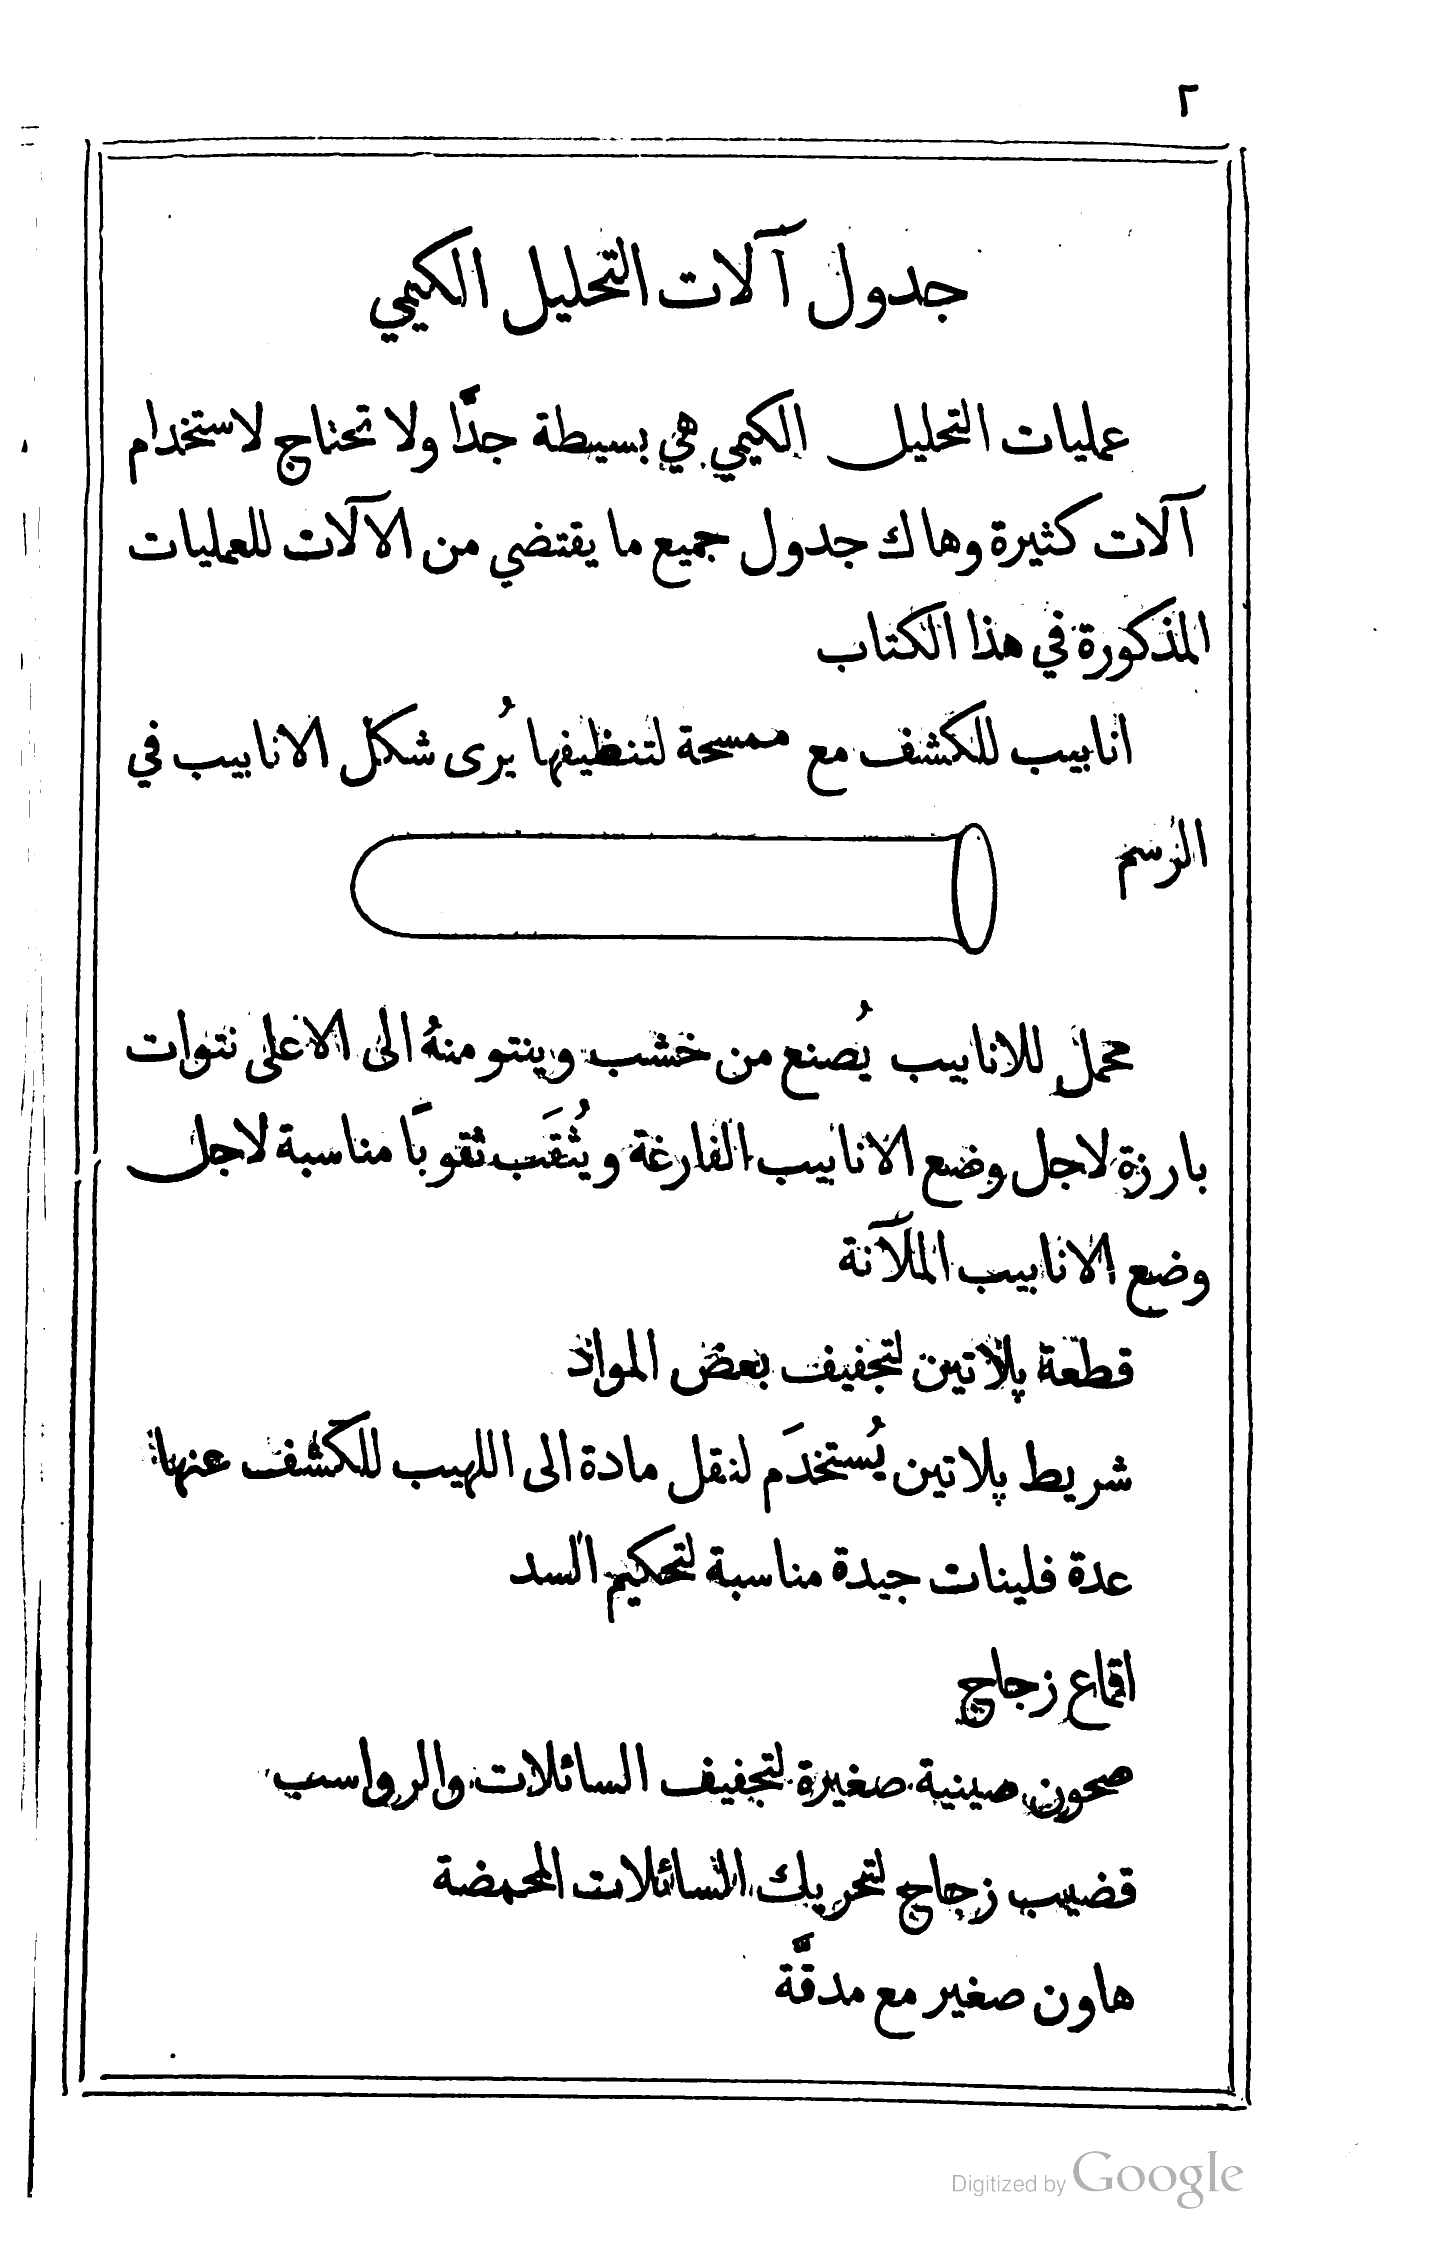 ٢
جدول آلات التحليل الكيمي
عمليات التحليل الكيمي هي بسيطة جدًّا ولا تحتاج لاستخدام
آلات كثيرة وهاك جدول جميع ما يقتضي من الآلات للعمليات
المذكورة في هذا الكتاب
انابيب للكشف مع ممسحة لتنظيفها يُرى شكل الانابيب في
الرسم
محمل للانابيب يُصنع من خشب وينتو منهُ الى الاعلى نتوات
بارزة لاجل وضع الانابيب الفارغة ويُثقَب ثقوبًا مناسبة لاجل
وضع الانابيب الملآنة
قطعة پلاتين لتجفيف بعض المواد
شريط پلاتين يُستخدَم لنقل مادة الى اللهيب للكشف عنها
عدة فلينات جيدة مناسبة لتحكيم السد
اقماع زجاج
صحون صينية صغيرة لتجفيف السائلات والرواسب
قضيب زجاج لتحريك السائلات المحمضة
هاون صغير مع مدقَّة
Digitized by Google